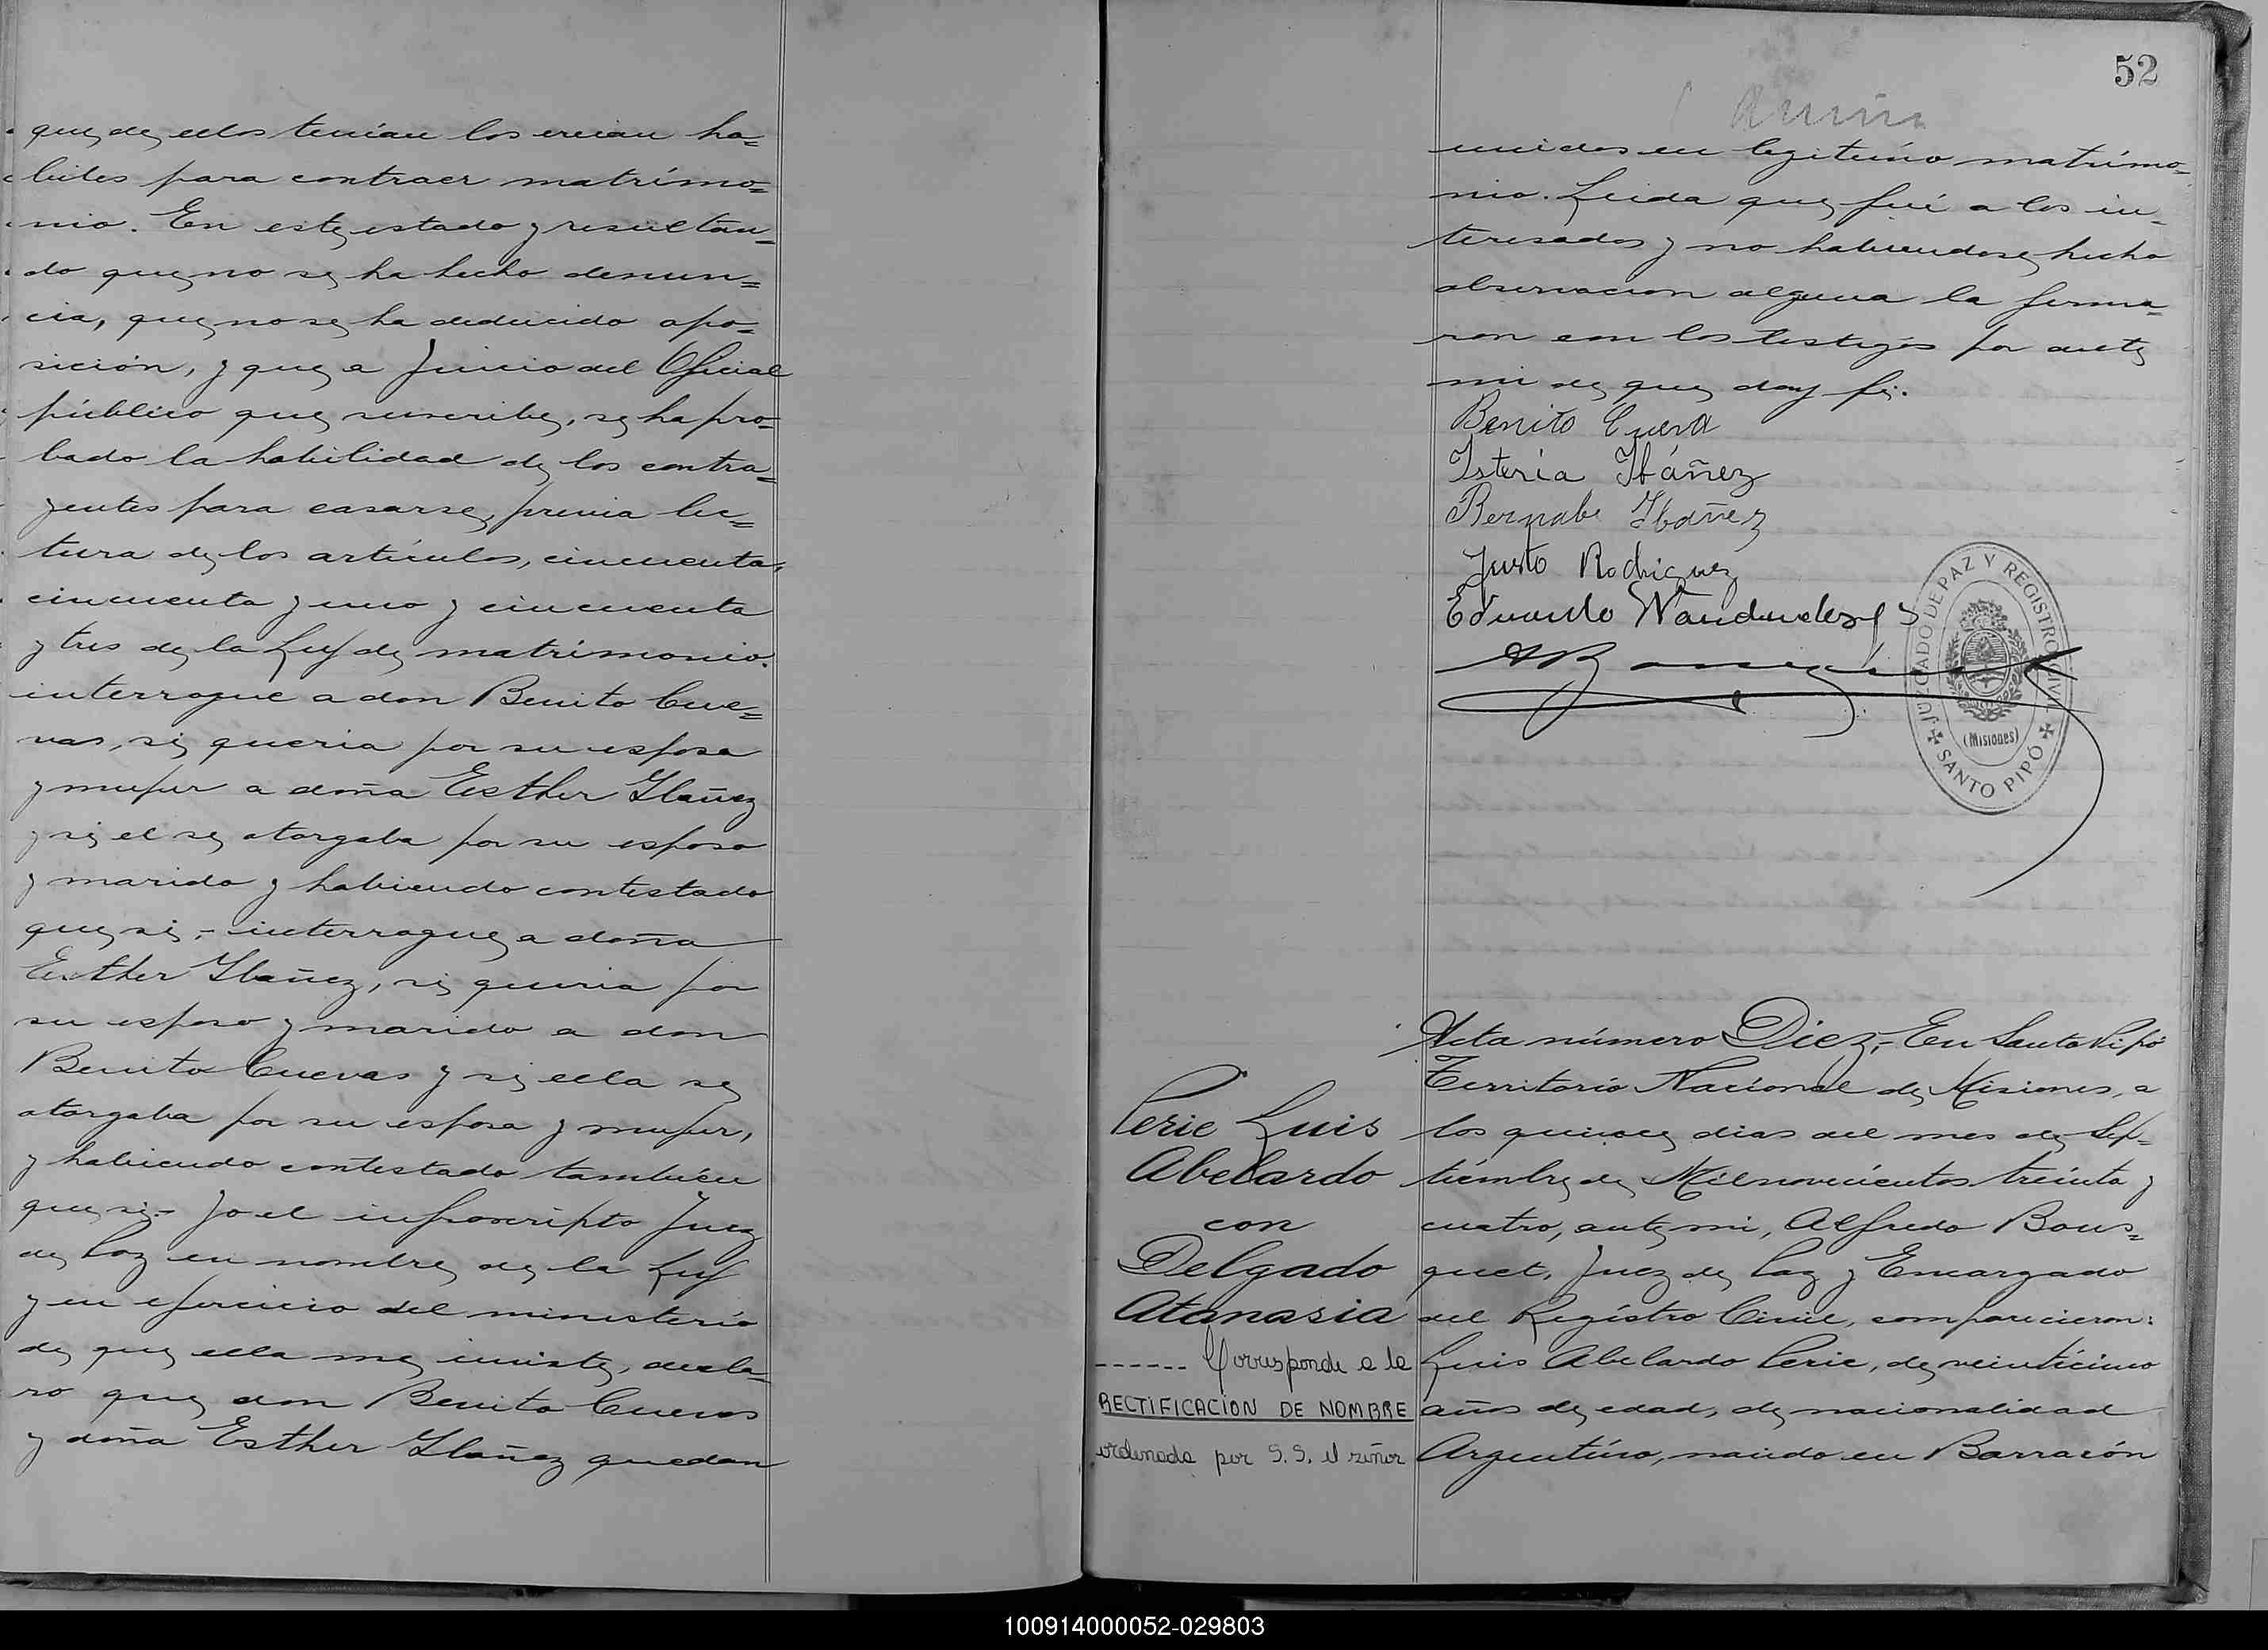 que de ellos tenian los creian ha=
biles para contraer matrimo=
nio. En este estado y resultan=
do que no se ha hecho denun=
cia, que no se ha deducido opo=
sición, y que a juicio del Oficial
público que suscribe, se ha pro=
bado la habilidad de los contra=
yentes para casarse, previa lec=
tura de los artículos, cincuenta,
cincuenta y uno y cincuenta
y tres de la Ley de matrimonio.
interrogue a don Benito Cue=
vas, si queria por su esposa
y mujer a doña Esther Ibañez
y si el se otorgaba por su esposo
y marido y habiendo contestado
que si,- interrogue a doña
Esther Ibañez, si queria por
su esposo y marido a don
Benito Cuevas y si ella se
otorgaba por su esposa y mujer,
y habiendo contestado también
que si.- Yo el infrascripto Juez
de Paz en nombre de la Ley
y en ejercicio del ministerio
de que ella me inviste, decla=
ro que don Benito Cuevas
y doña Esther Ibañez quedan
52
unidos en legitimo matrimo=
nio. Leida que fué a los in=
teresados y no habiendose hecho
observacion alguna la firma=
ron con los testigos por ante
mi de que doy fé.
Benito Cueva
Isteria Ibáñez
Bernabe Ibañez
Justo Rodriguez
Eduardo
JUZGADO DE PAZ Y REGISTRO CIVIL
(Misiones)
SANTO PIPÓ
Perie Luis
Abelardo
con
Delgado
Atanasia
------ Corresponde a la
RECTIFICACION DE NOMBRE
ordenada por S.S. el señor
Acta número Diez,- En Santo Pipó
Territorio Nacional de Misiones, a
los quince dias del mes de Sep=
tiembre de Mil novecientos treinta y
cuatro, ante mi, Alfredo Bous=
quet, Juez de Paz y Encargado
del Registro Civil, comparecieron:
Luis Abelardo Perie, de veinticinco
años de edad, de nacionalidad
Argentino, nacido en Barracón
100914000052-029803